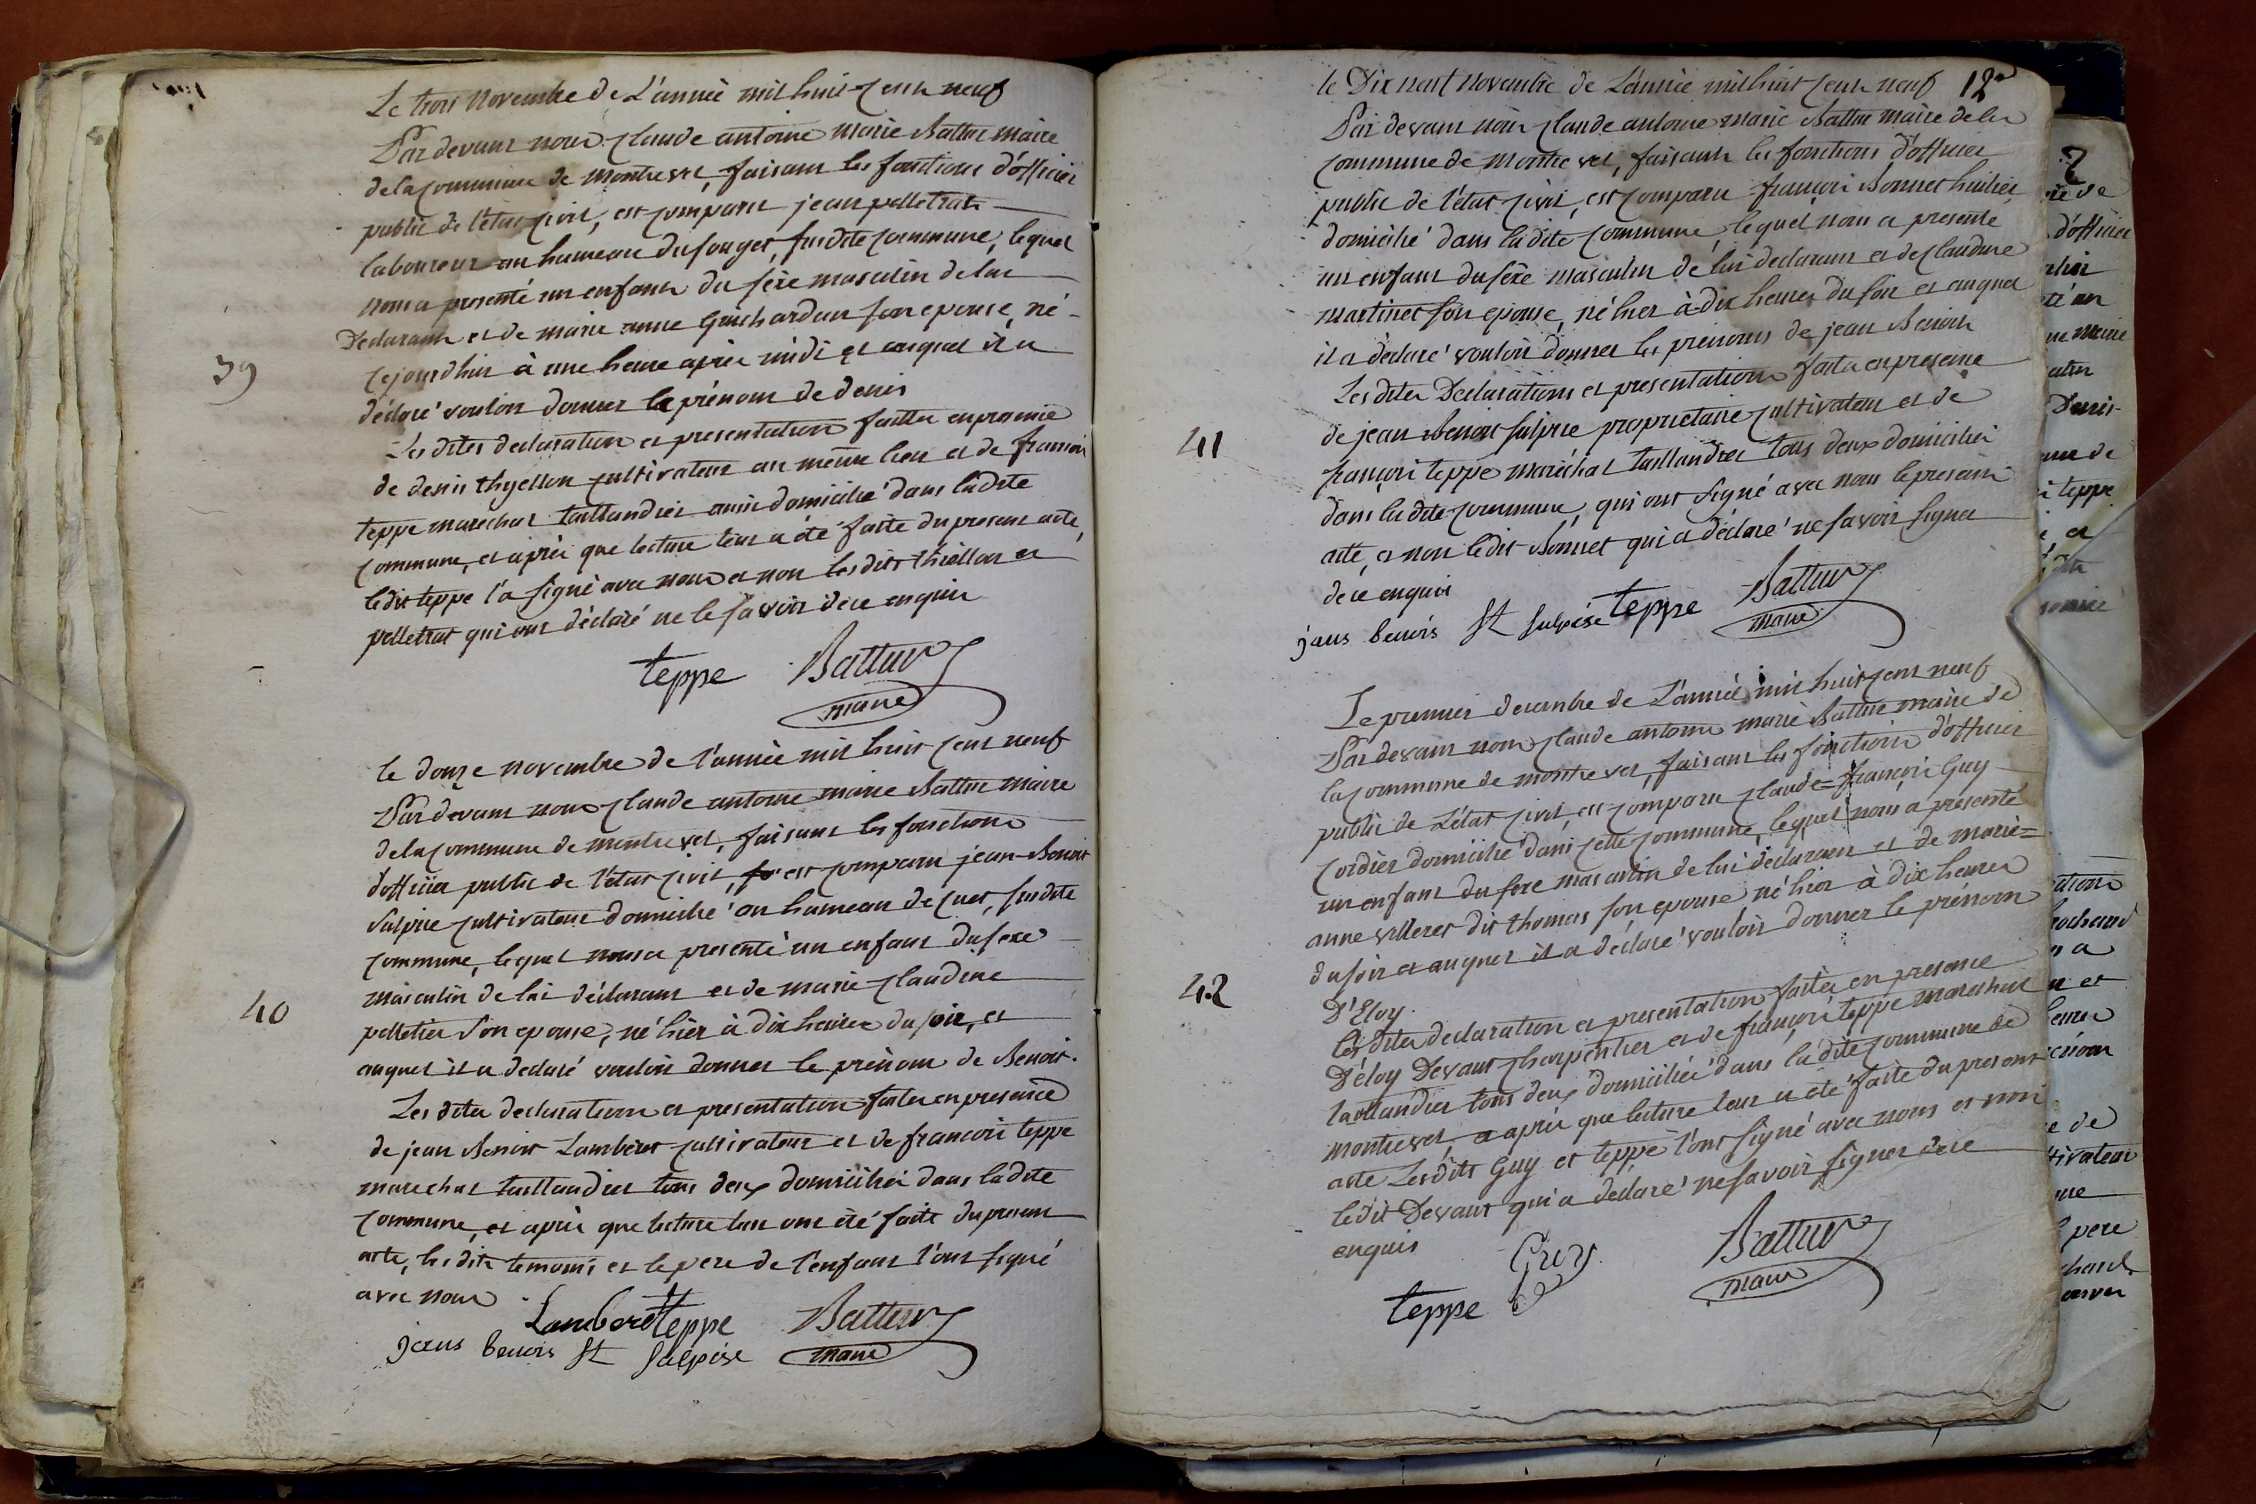 Le trois Novembre de L'année mil huit cent neuf
Par devant nous Claude antoine marie Battur maire
de la commune de montrevel, faisant les fonctions d'officier
public de l'état civil, est comparu jean pelletrat
laboureur au hameau du souget, susdite commune, lequel
nous a presenté un enfant du sexe masculin de lui
Declarant et de marie anne Guichardan son epouse, né
39
cejourd'hui à une heure après midi et auquel il a
déclaré vouloir donner le prénom de denis
Les dites declaration et presentation faites en presence
de denis thyellon cultivateur au même lieu et de francois
teppe marechal taillandier aussi domicilié dans ladite
commune, et après que lecture leur a été faite du present acte,
ledit teppe l'a signé avec nous et non lesdits thiellon et
pelletrat qui ont déclaré ne le savoir de ce enquis
teppe Battur
maire
le douze novembre de l'année mil huit cent neuf
Par devant nous Claude antoine marie Battur maire
de la commune de montrevel, faisant les fonctions
d'officier public de l'état civil, est comparu jean-Benoit
Sulpice cultivateur domicilié au hameau de Cuet, susdite
commune, lequel nous a presenté un enfant du sexe
masculin de lui déclarant et de marie Claudine
40
pelletier son epouse, né hier à dix heures du soir, et
auquel il a declaré vouloir donner le prénom de Benoit.
Les dites declaration et presentation faites en presence
de jean Benoit Lambert cultivateur et de francois teppe
marechal taillandier tous deux domiciliés dans ladite
commune, et après que lecture leur ont été faite du present
acte, les dits temoins et le pere de l'enfant l'ont signé
avec nous
Lambert teppe Battur
jans benois St Sulpise maire
12
le Dix neuf Novembre de L'année mil huit cent neuf
Par devant nous Claude antoine marie Battur maire de la
commune de montrevel, faisant les fonctions d'officier
public de l'état civil, est comparu françois Bonnet huilier
domicilié dans ladite commune, lequel nous a presenté
un enfant du sexe masculin de lui declarant et de Claudine
martinet son epouse, né hier à dix heures du soir et auquel
il a déclaré vouloir donner les prenoms de jean Benoit
Les dites Declarations et presentation faites en presence
41
de jean Benoit Sulpice proprietaire cultivateur et de
françois teppe maréchal taillandier tous deux domiciliés
dans ladite commune, qui ont signé avec nous le present
acte, et non ledit Bonnet qui a déclaré ne savoir signer
de ce enquis
jans benois St Sulpise teppe Battur
maire
Le premier decembre de L'année mil huit cent neuf
Par devant nous Claude antoine marie Battur maire de
la commune de montrevel, faisant les fonctions d'officier
public de L'état civil, est comparu Claude-françois Guy
cordier domicilié dans cette commune, lequel nous a presenté
un enfant du sexe masculin de lui déclarant et de marie=
anne villeret dit thomas son epouse né hier à dix heures
du soir et auquel il a déclaré vouloir donner le prénom
42
D'Eloy.
Les dites declaration et presentation faites en presence
D'éloy Devaux Charpentier et de françois teppe marechal
taillandier tous deux domiciliés dans ladite commune de
montrevel, et après que lecture leur a été faite du present
acte Lesdits Guy et teppe l'ont signé avec nous et non
ledit Devaux qui a déclaré ne savoir signer de ce
enquis
Guy Battur
teppe maire